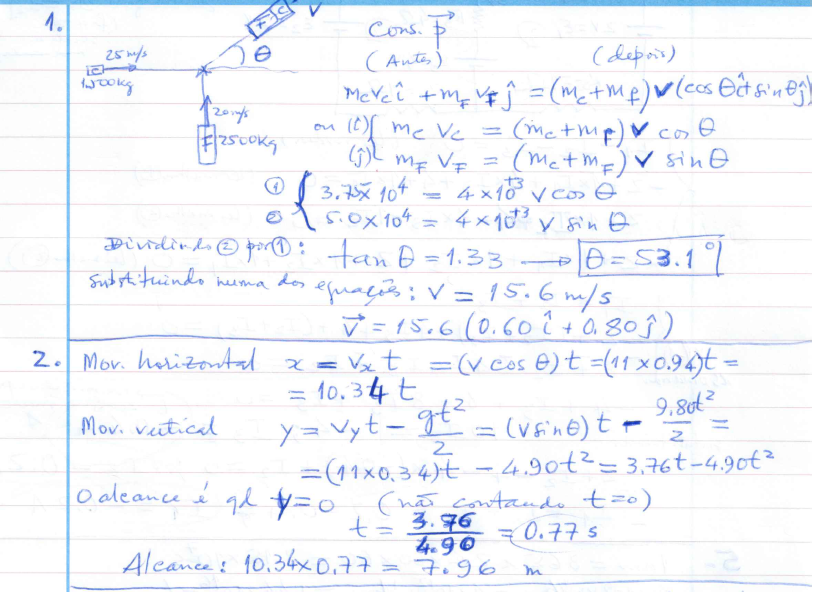 1.
C V
θ
25 m/s
1500kg
20m/s
F 2500Kg
Cons. p⃗
(Antes) (depois)
m_c v_c î + m_F v_F ĵ = (m_c+m_f) v (cos θ î + sin θ ĵ)
ou (î) { m_c v_c = (m_c+m_F) v cos θ
(ĵ) { m_F v_F = (m_c+m_F) v sin θ
① { 3.75 x 10⁴ = 4 x 10⁺³ v cos θ
② { 5.0 x 10⁴ = 4 x 10⁺³ v sin θ
Dividindo ② por ①: tan θ = 1.33 → θ = 53.1°
substituindo numa das equações: v = 15.6 m/s
v⃗ = 15.6 (0.60 î + 0.80 ĵ)
2. Mov. horizontal x = v_x t = (v cos θ) t = (11 x 0.94)t =
= 10.34 t
Mov. vertical y = v_y t - gt²/2 = (v sin θ) t - 9.80t²/2 =
= (11x0.34)t - 4.90t² = 3.76t - 4.90t²
O alcance é qd y = 0 (não contando t=0)
t = 3.76/4.90 = 0.77 s
Alcance: 10.34 x 0.77 = 7.96 m